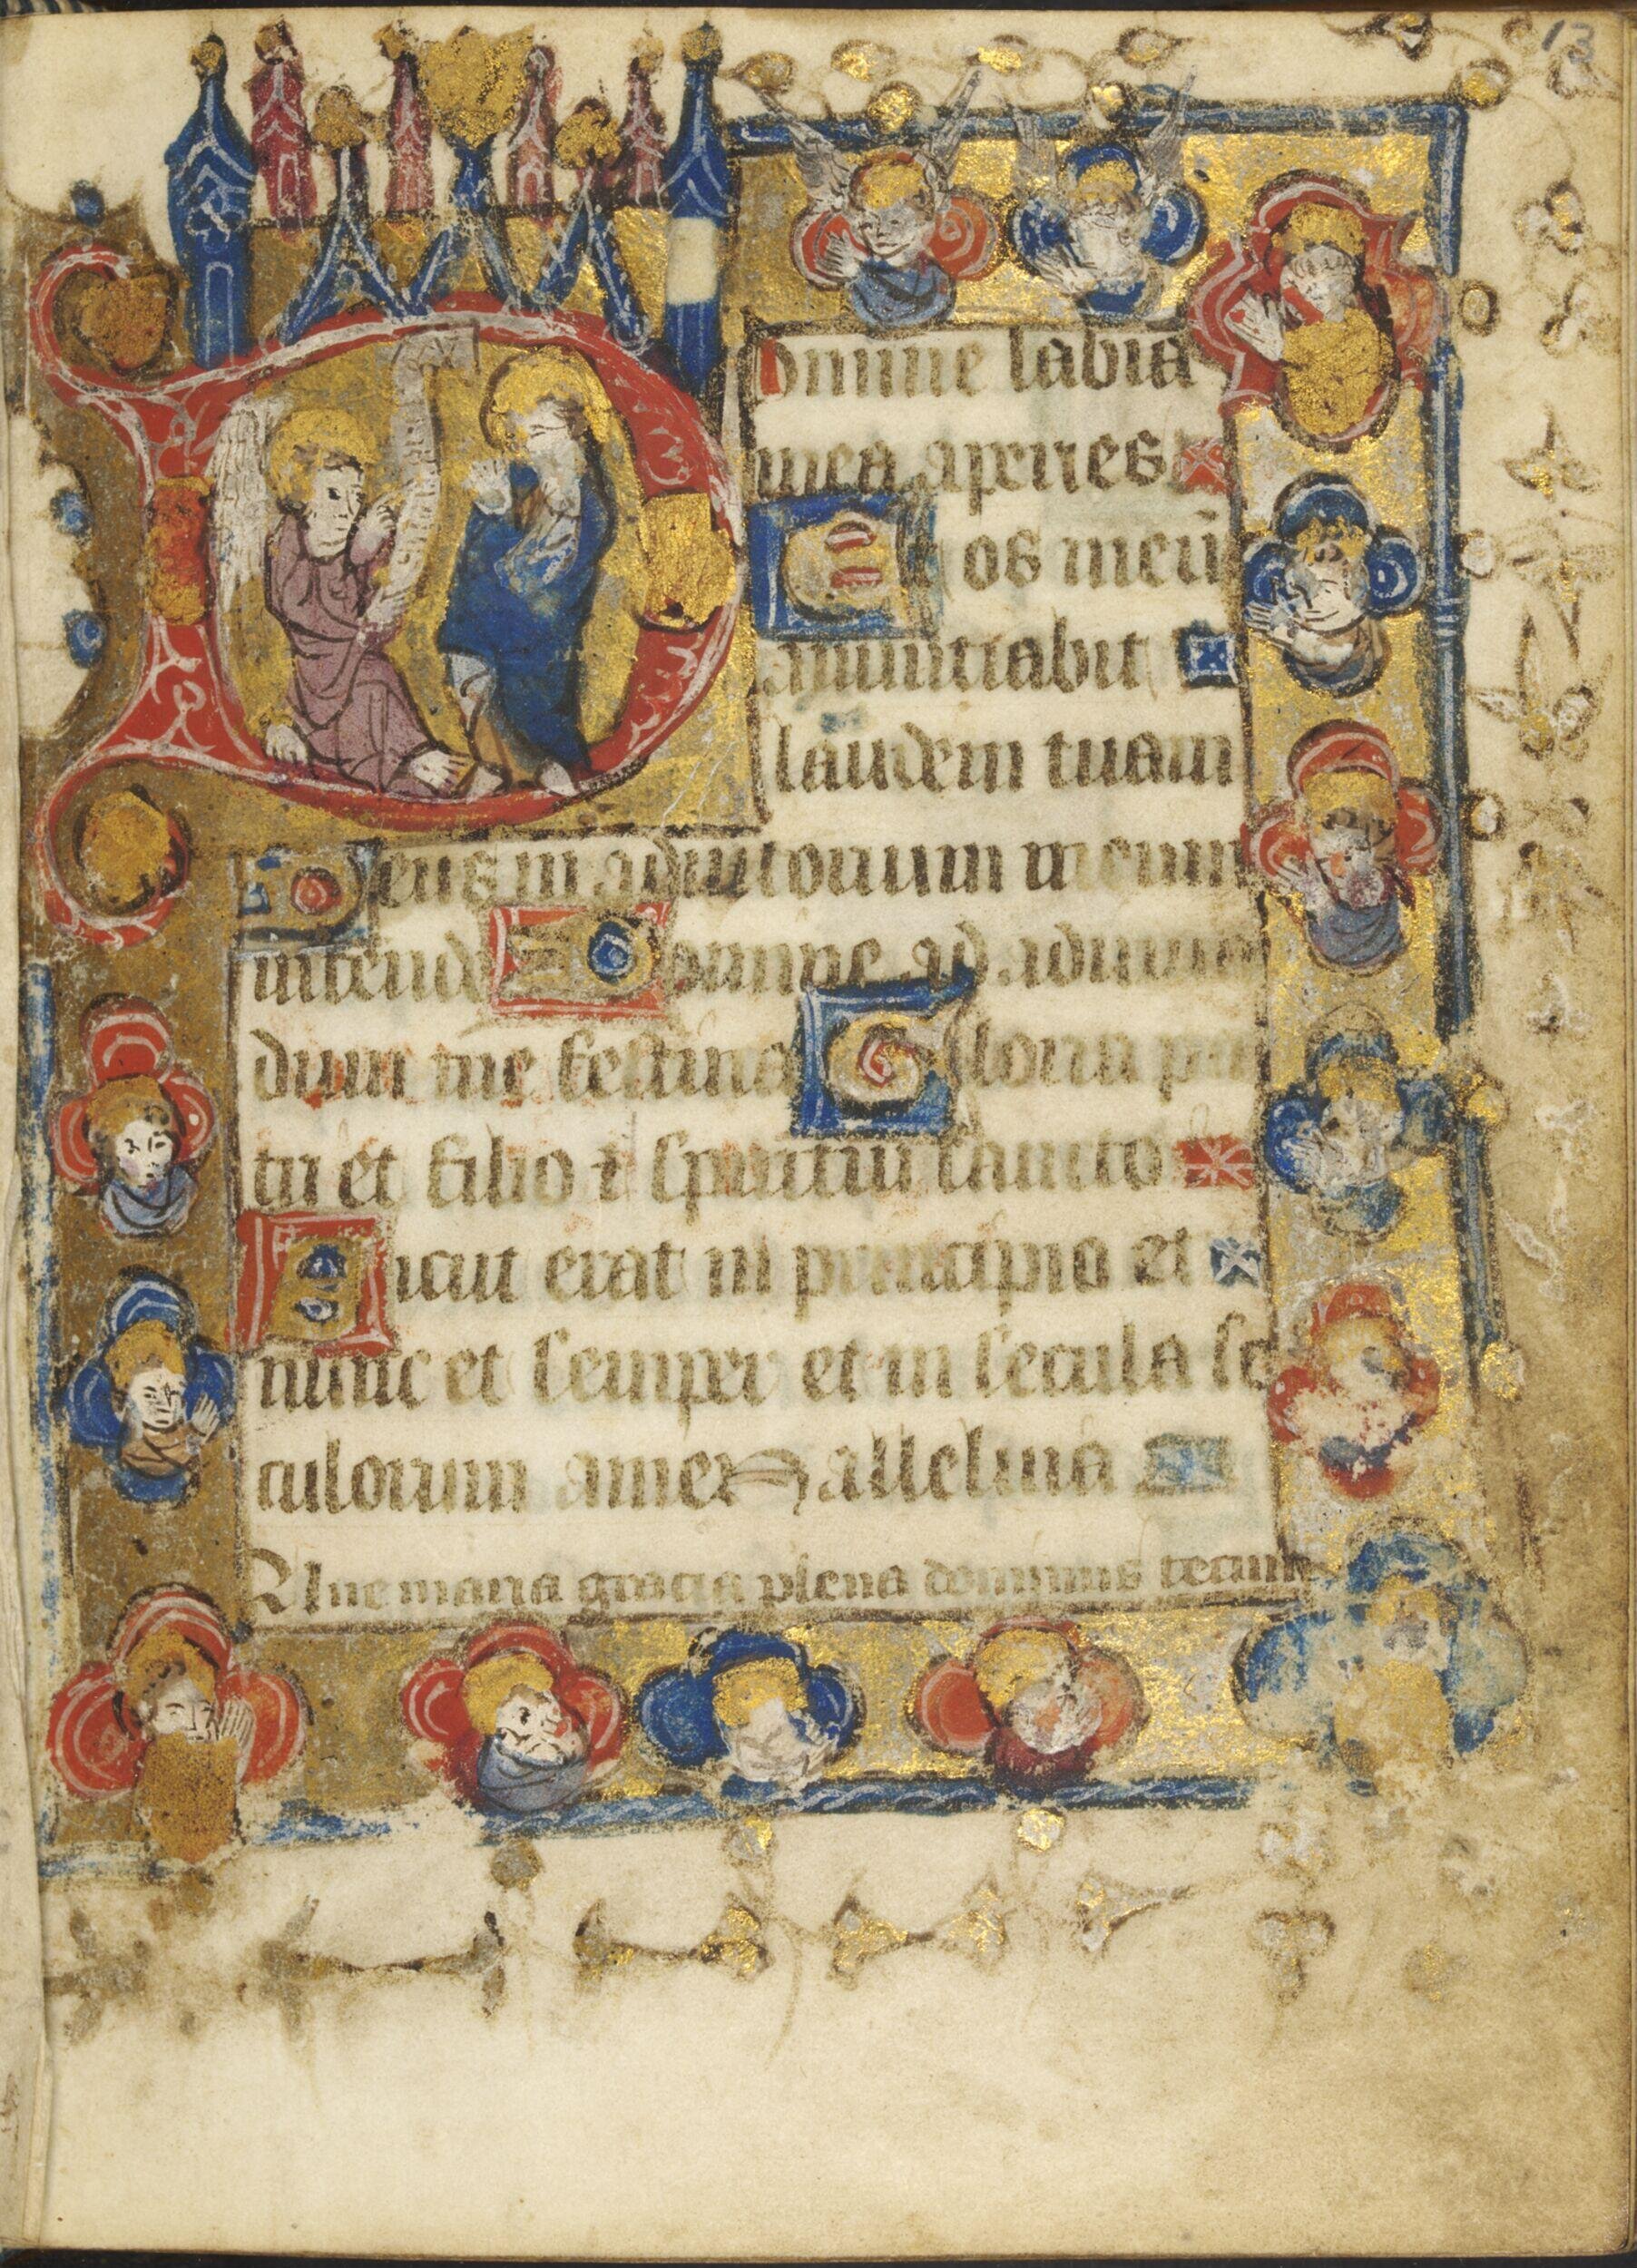 13
Domine labia
mea aperies
Et os meū
annuntiabit
laudem tuam
Deus in adiutorium meum
intende Domine ad adiuuan
dum me festina Gloria pa
tri et filio ⁊ spiritui sancto
Sicut erat in principio et
nunc et semper et in secula se
culorum amen alleluia
Aue maria gracia plena dominus tecum